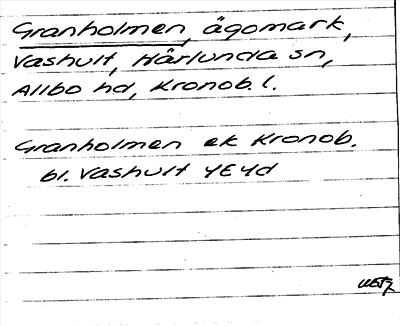 Granholmen, ägomark,
Vashult, Härlunda sn,
Allbo hd, Kronob. l.
Granholmen ek Kronob.
bl. Vashult 4E4d